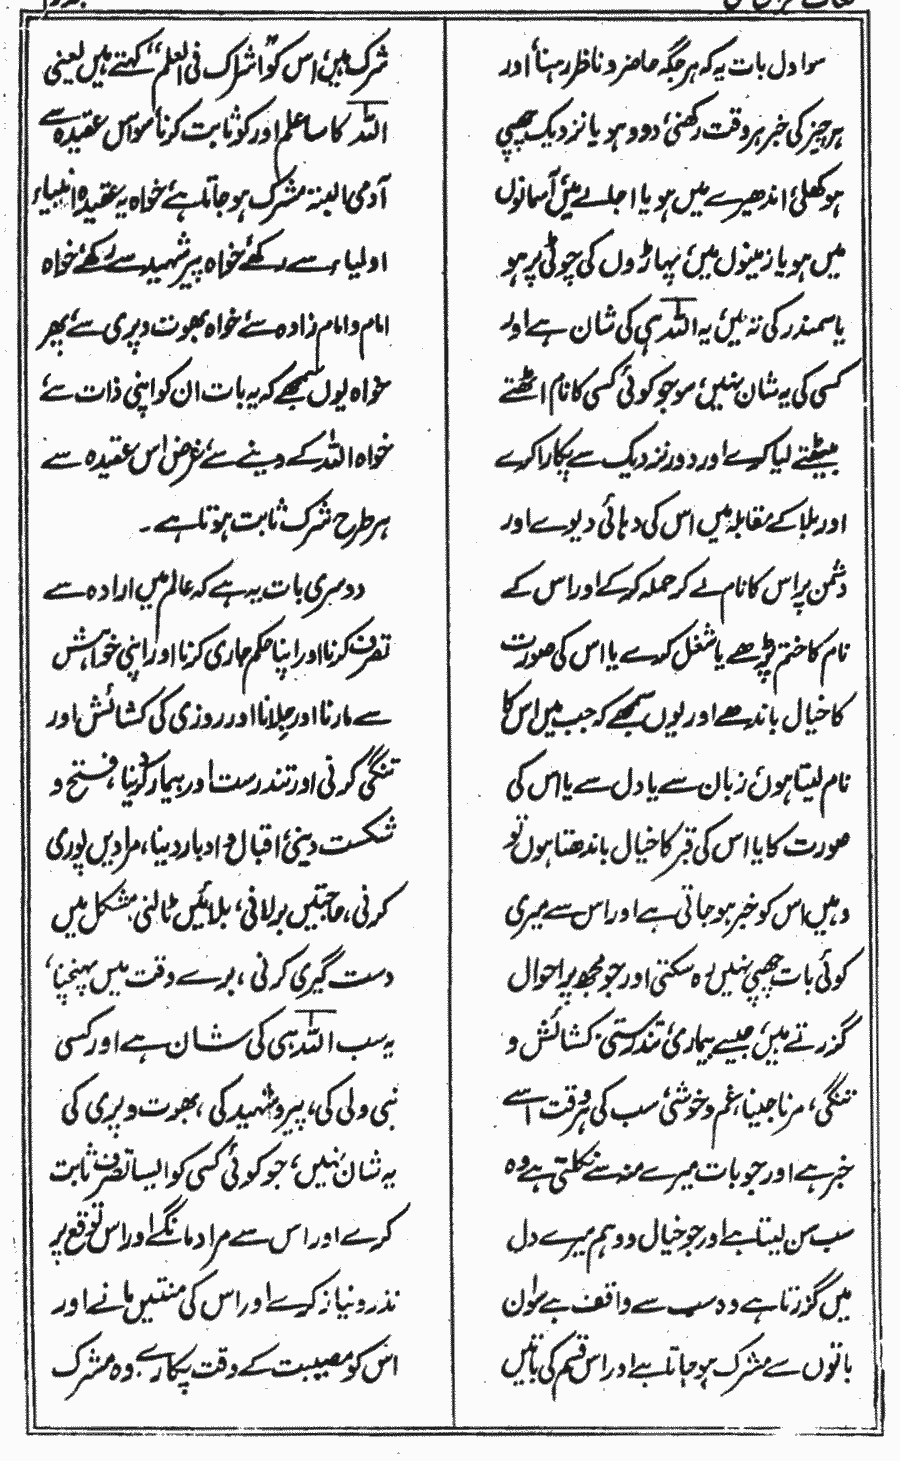 سوا دل بات یہ کہ ہر جگہ حاضر و ناظر رہنا، اور
ہر چیز کی خبر ہر وقت رکھنی، دور ہو یا نزدیک چھپی
ہو کھلی، اندھیرے میں ہو یا اجالے میں، آسمانوں
میں ہو یا زمینوں میں، پہاڑوں کی چوٹی پر ہو
یا سمندر کی تہ میں، یہ اللہ ہی کی شان ہے اور
کسی کی یہ شان نہیں، سو جو کوئی کسی کا نام اٹھتے
بیٹھتے لیا کرے اور دور نزدیک سے پکارا کرے
اور بلا کے مقابلہ میں اس کی دہائی دیوے اور
دشمن پر اس کا نام لے کر حملہ کرے اور اس کے
نام کا ختم پڑھے یا شغل کرے یا اس کی صورت
کا خیال باندھے اور یوں سمجھے کہ جب میں اس کا
نام لیتا ہوں، زبان سے یا دل سے یا اس کی
صورت کا یا اس کی قبر کا خیال باندھتا ہوں تو
وہیں اس کو خبر ہو جاتی ہے اور اس سے میری
کوئی بات چھپی نہیں رہ سکتی اور جو مجھ پر احوال
گزرتے ہیں، جیسے بیماری، تندرستی، کشائش و
تنگی، مرنا جینا، غم و خوشی، سب کی ہر وقت اسے
خبر ہے اور جو بات میرے منہ سے نکلتی ہے وہ
سب سن لیتا ہے اور جو خیال و وہم میرے دل
میں گزرتا ہے وہ سب سے واقف ہے سو ان
باتوں سے مشرک ہو جاتا ہے اور اس قسم کی باتیں
شرک ہیں، اس کو ”اشراک فی العلم“ کہتے ہیں یعنی
اللہ کا سا علم اور کو ثابت کرنا، سو اس عقیدہ سے
آدمی البتہ مشرک ہو جاتا ہے، خواہ یہ عقیدہ انبیاء
اولیاء سے رکھے، خواہ پیر شہید سے رکھے، خواہ
امام و امام زادہ سے، خواہ بھوت و پری سے، پھر
خواہ یوں سمجھے کہ یہ بات ان کو اپنی ذات سے،
خواہ اللہ کے دینے سے، غرض اس عقیدہ سے
ہر طرح شرک ثابت ہوتا ہے۔
دوسری بات یہ ہے کہ عالم میں ارادہ سے
تصرف کرنا اور اپنا حکم جاری کرنا اور اپنی خواہش
سے مارنا اور جلانا اور روزی کی کشائش اور
تنگی کرنی اور تندرست اور بیمار کر دینا، فتح و
شکست دینی، اقبال و ادبار دینا، مرادیں پوری
کرنی، حاجتیں برلانی، بلائیں ٹالنی، مشکل میں
دست گیری کرنی، برے وقت میں پہنچنا،
یہ سب اللہ ہی کی شان ہے اور کسی
نبی و ولی کی، پیر و شہید کی، بھوت و پری کی
یہ شان نہیں، جو کوئی کسی کو ایسا تصرف ثابت
کرے اور اس سے مراد مانگے اور اس توقع پر
نذر و نیاز کرے اور اس کی منتیں مانے اور
اس کو مصیبت کے وقت پکارے وہ مشرک